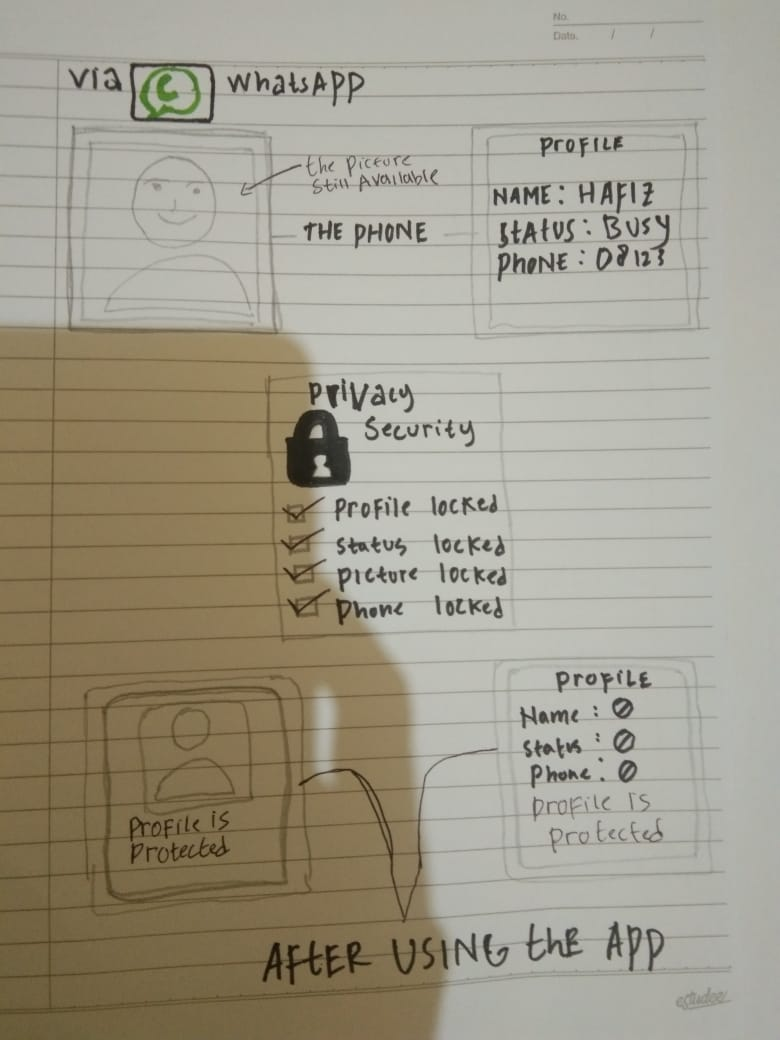 No.
Date. / /
via WhatsApp
the Picture
Still Available
THE PHONE
PROFILE
NAME: HAFIZ
Status: Busy
Phone: 08123
Privacy
Security
Profile locked
Status locked
Picture locked
Phone locked
Profile is
Protected
Profile
Name:
Status:
Phone:
Profile is
protected
AFTER USING thE APP
estudee